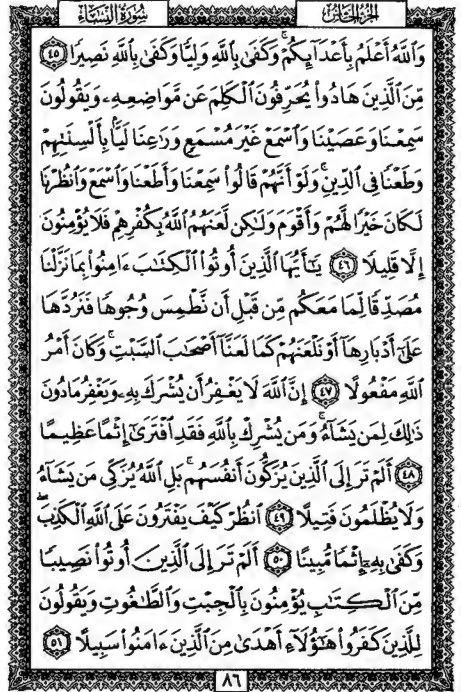 الجزء الخامس
سورة النساء
وَٱللَّهُ أَعْلَمُ بِأَعْدَآئِكُمْ ۚ وَكَفَىٰ بِٱللَّهِ وَلِيًّا وَكَفَىٰ بِٱللَّهِ نَصِيرًا ٤٥
مِّنَ ٱلَّذِينَ هَادُوا۟ يُحَرِّفُونَ ٱلْكَلِمَ عَن مَّوَاضِعِهِۦ وَيَقُولُونَ
سَمِعْنَا وَعَصَيْنَا وَٱسْمَعْ غَيْرَ مُسْمَعٍ وَرَٰعِنَا لَيًّۢا بِأَلْسِنَتِهِمْ
وَطَعْنًا فِى ٱلدِّينِ ۚ وَلَوْ أَنَّهُمْ قَالُوا۟ سَمِعْنَا وَأَطَعْنَا وَٱسْمَعْ وَٱنظُرْنَا
لَكَانَ خَيْرًا لَّهُمْ وَأَقْوَمَ وَلَٰكِن لَّعَنَهُمُ ٱللَّهُ بِكُفْرِهِمْ فَلَا يُؤْمِنُونَ
إِلَّا قَلِيلًا ٤٦ يَٰٓأَيُّهَا ٱلَّذِينَ أُوتُوا۟ ٱلْكِتَٰبَ ءَامِنُوا۟ بِمَا نَزَّلْنَا
مُصَدِّقًا لِّمَا مَعَكُم مِّن قَبْلِ أَن نَّطْمِسَ وُجُوهًا فَنَرُدَّهَا
عَلَىٰٓ أَدْبَارِهَآ أَوْ نَلْعَنَهُمْ كَمَا لَعَنَّآ أَصْحَٰبَ ٱلسَّبْتِ ۚ وَكَانَ أَمْرُ
ٱللَّهِ مَفْعُولًا ٤٧ إِنَّ ٱللَّهَ لَا يَغْفِرُ أَن يُشْرَكَ بِهِۦ وَيَغْفِرُ مَا دُونَ
ذَٰلِكَ لِمَن يَشَآءُ ۚ وَمَن يُشْرِكْ بِٱللَّهِ فَقَدِ ٱفْتَرَىٰٓ إِثْمًا عَظِيمًا
٤٨ أَلَمْ تَرَ إِلَى ٱلَّذِينَ يُزَكُّونَ أَنفُسَهُم ۚ بَلِ ٱللَّهُ يُزَكِّى مَن يَشَآءُ
وَلَا يُظْلَمُونَ فَتِيلًا ٤٩ ٱنظُرْ كَيْفَ يَفْتَرُونَ عَلَى ٱللَّهِ ٱلْكَذِبَ ۖ
وَكَفَىٰ بِهِۦٓ إِثْمًا مُّبِينًا ٥٠ أَلَمْ تَرَ إِلَى ٱلَّذِينَ أُوتُوا۟ نَصِيبًا
مِّنَ ٱلْكِتَٰبِ يُؤْمِنُونَ بِٱلْجِبْتِ وَٱلطَّٰغُوتِ وَيَقُولُونَ
لِلَّذِينَ كَفَرُوا۟ هَٰٓؤُلَآءِ أَهْدَىٰ مِنَ ٱلَّذِينَ ءَامَنُوا۟ سَبِيلًا ٥١
٨٦